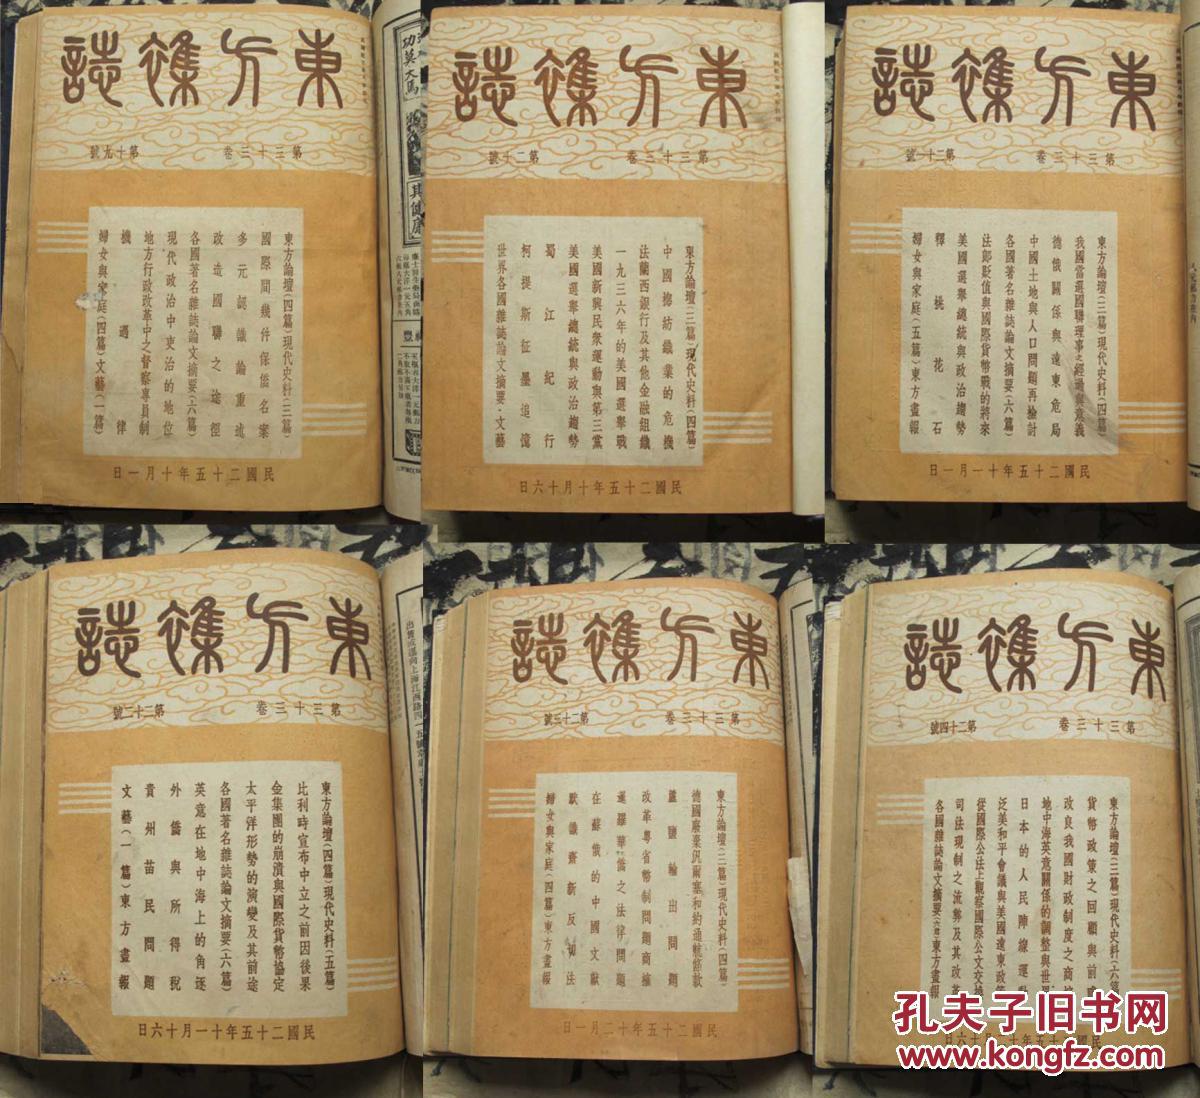 東方雜誌
第三十三卷
第十九號
東方論壇(四篇)現代史料(三篇)
國際間幾件保僑名案
多元認識論重述
改造國聯之途徑
各國著名雜誌論文摘要(六篇)
現代政治中吏治的地位
地方行政改革中之督察專員制
機遇律
婦女與家庭(四篇)文藝(一篇)
民國二十五年十月一日
東方雜誌
第三十三卷
第二十號
東方論壇(三篇)現代史料(四篇)
中國棉紡織業的危機
法蘭西銀行及其他金融組織
一九三六年的美國選舉戰
美國新興民衆運動與第三黨
美國選舉總統與政治趨勢
蜀江紀行
柯提斯征墨追憶
世界各國雜誌論文摘要·文藝
民國二十五年十月十六日
東方雜誌
第三十三卷
第二十一號
東方論壇(三篇)現代史料(四篇)
我國當選國聯理事之經過與意義
德俄關係與遠東危局
中國土地與人口問題再檢討
各國著名雜誌論文摘要(六篇)
法郎貶值與國際貨幣戰的將來
美國選舉總統與政治趨勢
釋桃花石
婦女與家庭(五篇)東方畫報
民國二十五年十一月一日
東方雜誌
第三十三卷
第二十二號
東方論壇(四篇)現代史料(五篇)
比利時宣布中立之前因後果
金集團的崩潰與國際貨幣協定
太平洋形勢的演變及其前途
各國著名雜誌論文摘要(六篇)
英意在地中海上的角逐
外僑與所得稅
貴州苗民問題
文藝(一篇)東方畫報
民國二十五年十一月十六日
東方雜誌
第三十三卷
第二十三號
東方論壇(三篇)現代史料(四篇)
德國廢棄凡爾塞和約通航條款
蘆鹽輸出問題
改革粵省幣制問題商榷
暹羅華僑之法律問題
在蘇俄的中國文獻
默識齋新反切法
婦女與家庭(四篇)東方畫報
民國二十五年十二月一日
東方雜誌
第三十三卷
第二十四號
東方論壇(三篇)現代史料(六篇)
貨幣政策之回顧與前瞻
改良我國財政制度之商榷
地中海英意關係的調整與世界
日本的人民陣線運動
泛美和平會議與美國遠東政策
從國際公法上觀察國際公文交換
司法現制之流弊及其改革
各國雜誌論文摘要(六篇)東方畫報
孔夫子旧书网
www.kongfz.com